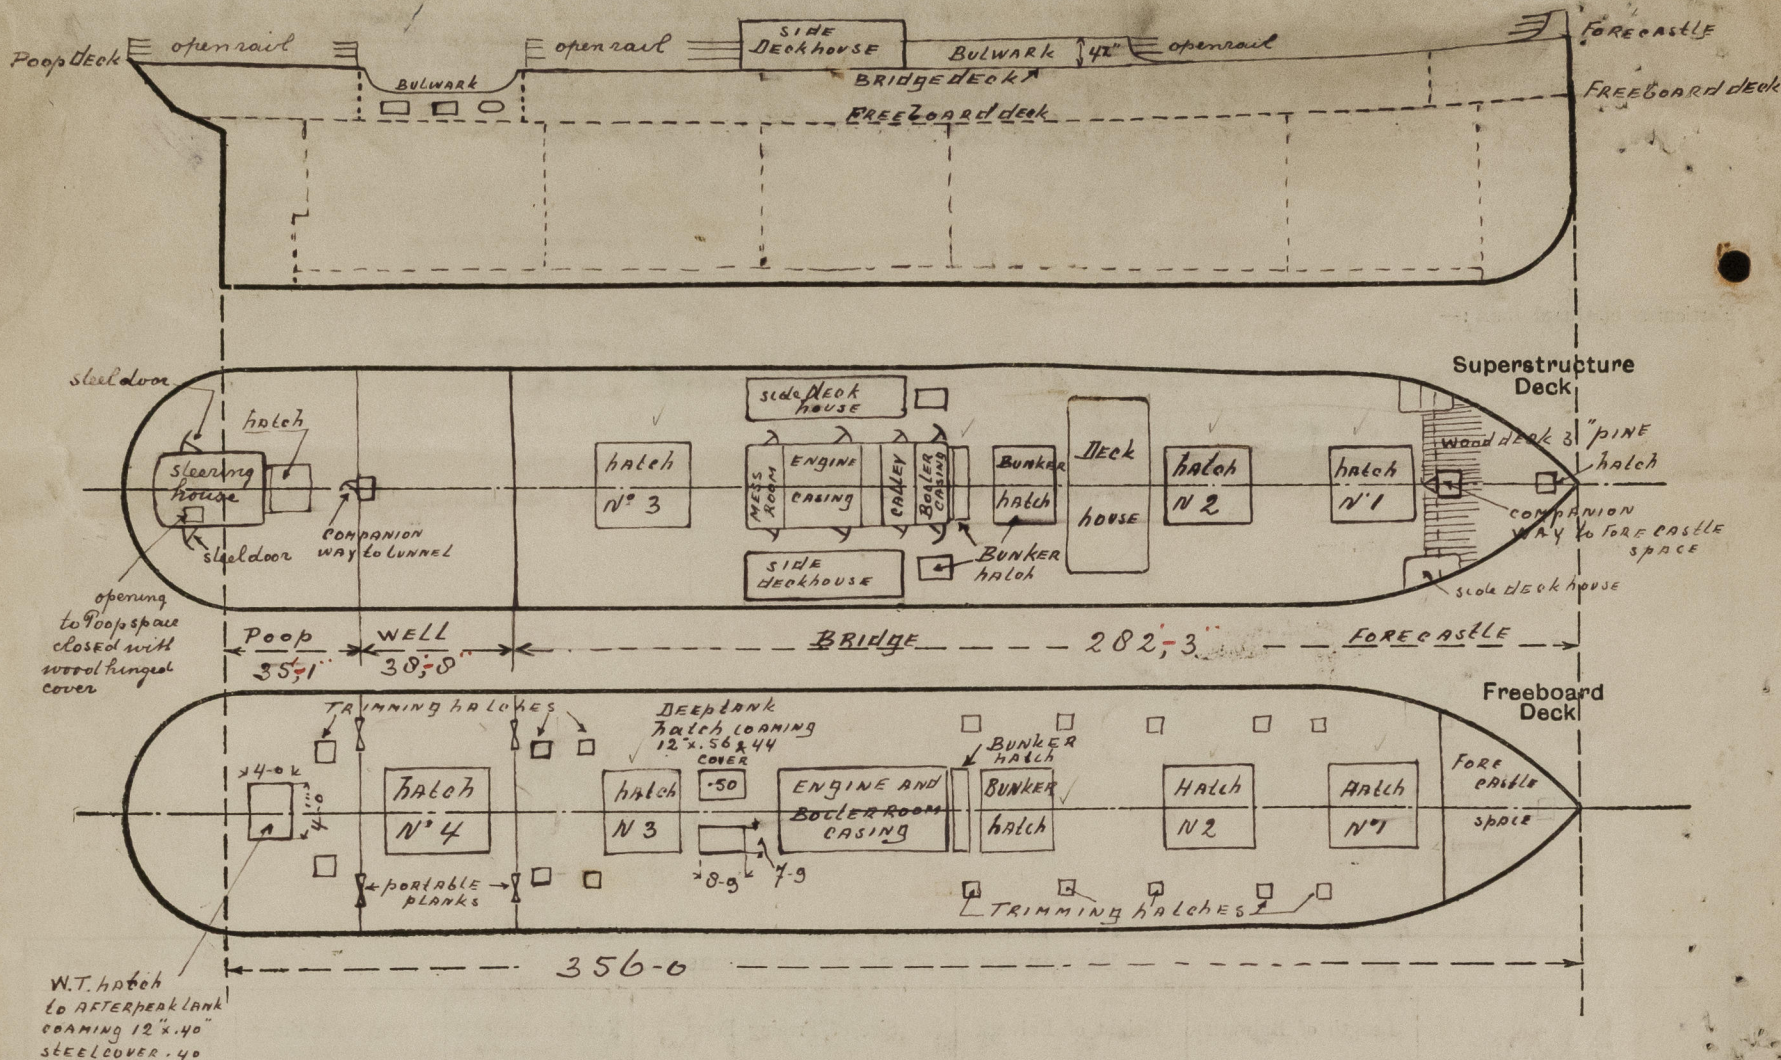 Poop Deck
open rail
open rail
SIDE
DECKHOUSE
BULWARK
42"
open rail
FORECASTLE
BULWARK
BRIDGE deck
FREEBOARD deck
FREEBOARD deck
Superstructure
Deck
steel door
hatch
steering
house
steel door
COMPANION
WAY to tunnel
opening
to Poop space
closed with
wood hinged
cover
hatch
Nº 3
side DECK
house
MESS
ROOM
ENGINE
CASING
GALLEY
BOILER
CASING
SIDE
deckhouse
BUNKER
hatch
BUNKER
hatch
DECK
house
hatch
N 2
hatch
Nº1
wood deck 3" PINE
hatch
COMPANION
WAY to FORE CASTLE
SPACE
side deck house
Poop
35'-1"
WELL
38'-8"
BRIDGE
282'-3"
FORECASTLE
Freeboard
Deck
TRIMMING hatches
4-0
4-0
hatch
Nº 4
portable
planks
DEEPTANK
hatch COAMING
12"x.56 & 44
COVER
.50
hatch
N 3
8-9
7-9
ENGINE AND
BOILERROOM
CASING
BUNKER
hatch
BUNKER
hatch
HATCH
N 2
HATCH
Nº1
FORE
CASTLE
SPACE
TRIMMING hatches
356-0
W.T. hatch
to AFTERPEAK tANK
COAMING 12"x.40"
STEELCOVER .40